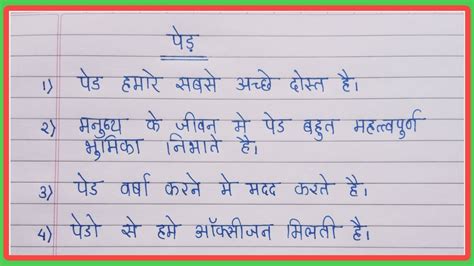 पेड़
1) पेड हमारे सबसे अच्छे दोस्त है।
2) मनुष्य के जीवन मे पेड बहुत महत्वपूर्ण
भूमिका निभाते है।
3) पेड वर्षा करने मे मदद करते है।
4) पेडो से हमे ऑक्सीजन मिलती है।